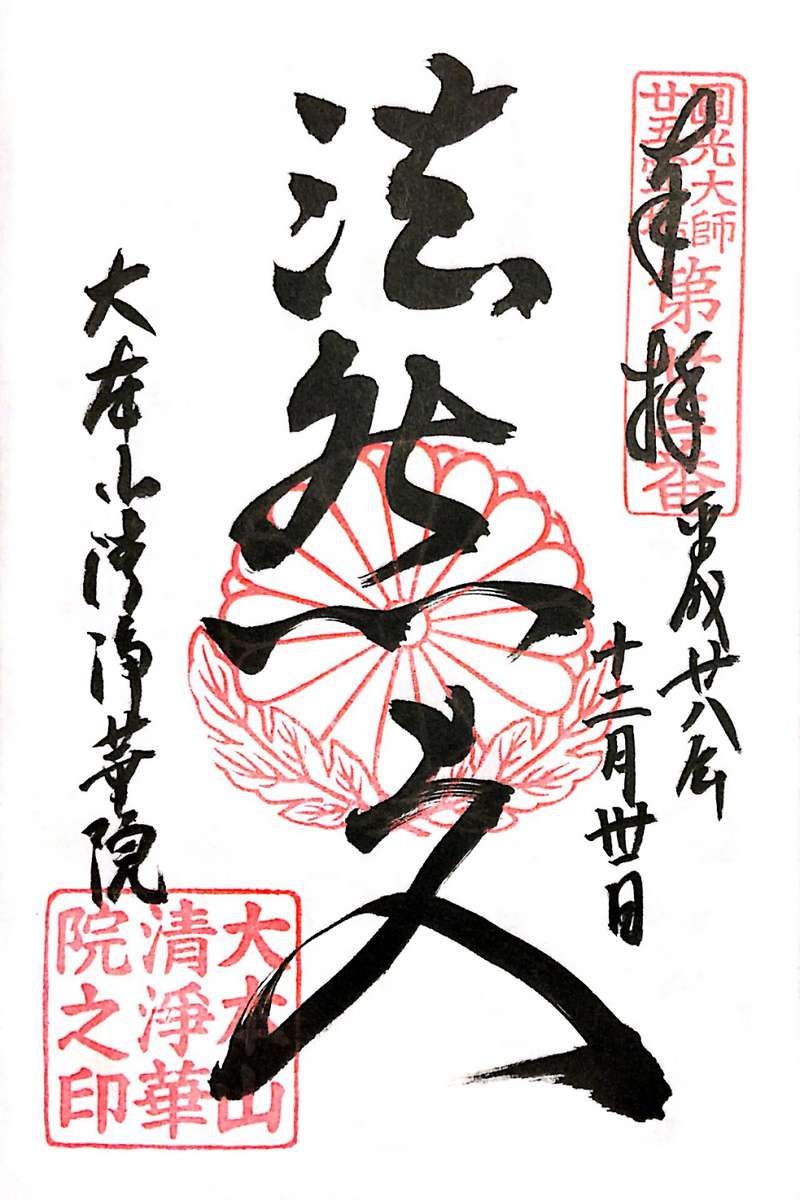 圓光大師
廿五霊場
第廿三番
奉拝
平成廿八年
十二月丗日
法然上人
大本山清浄華院
大本山
清淨華
院之印